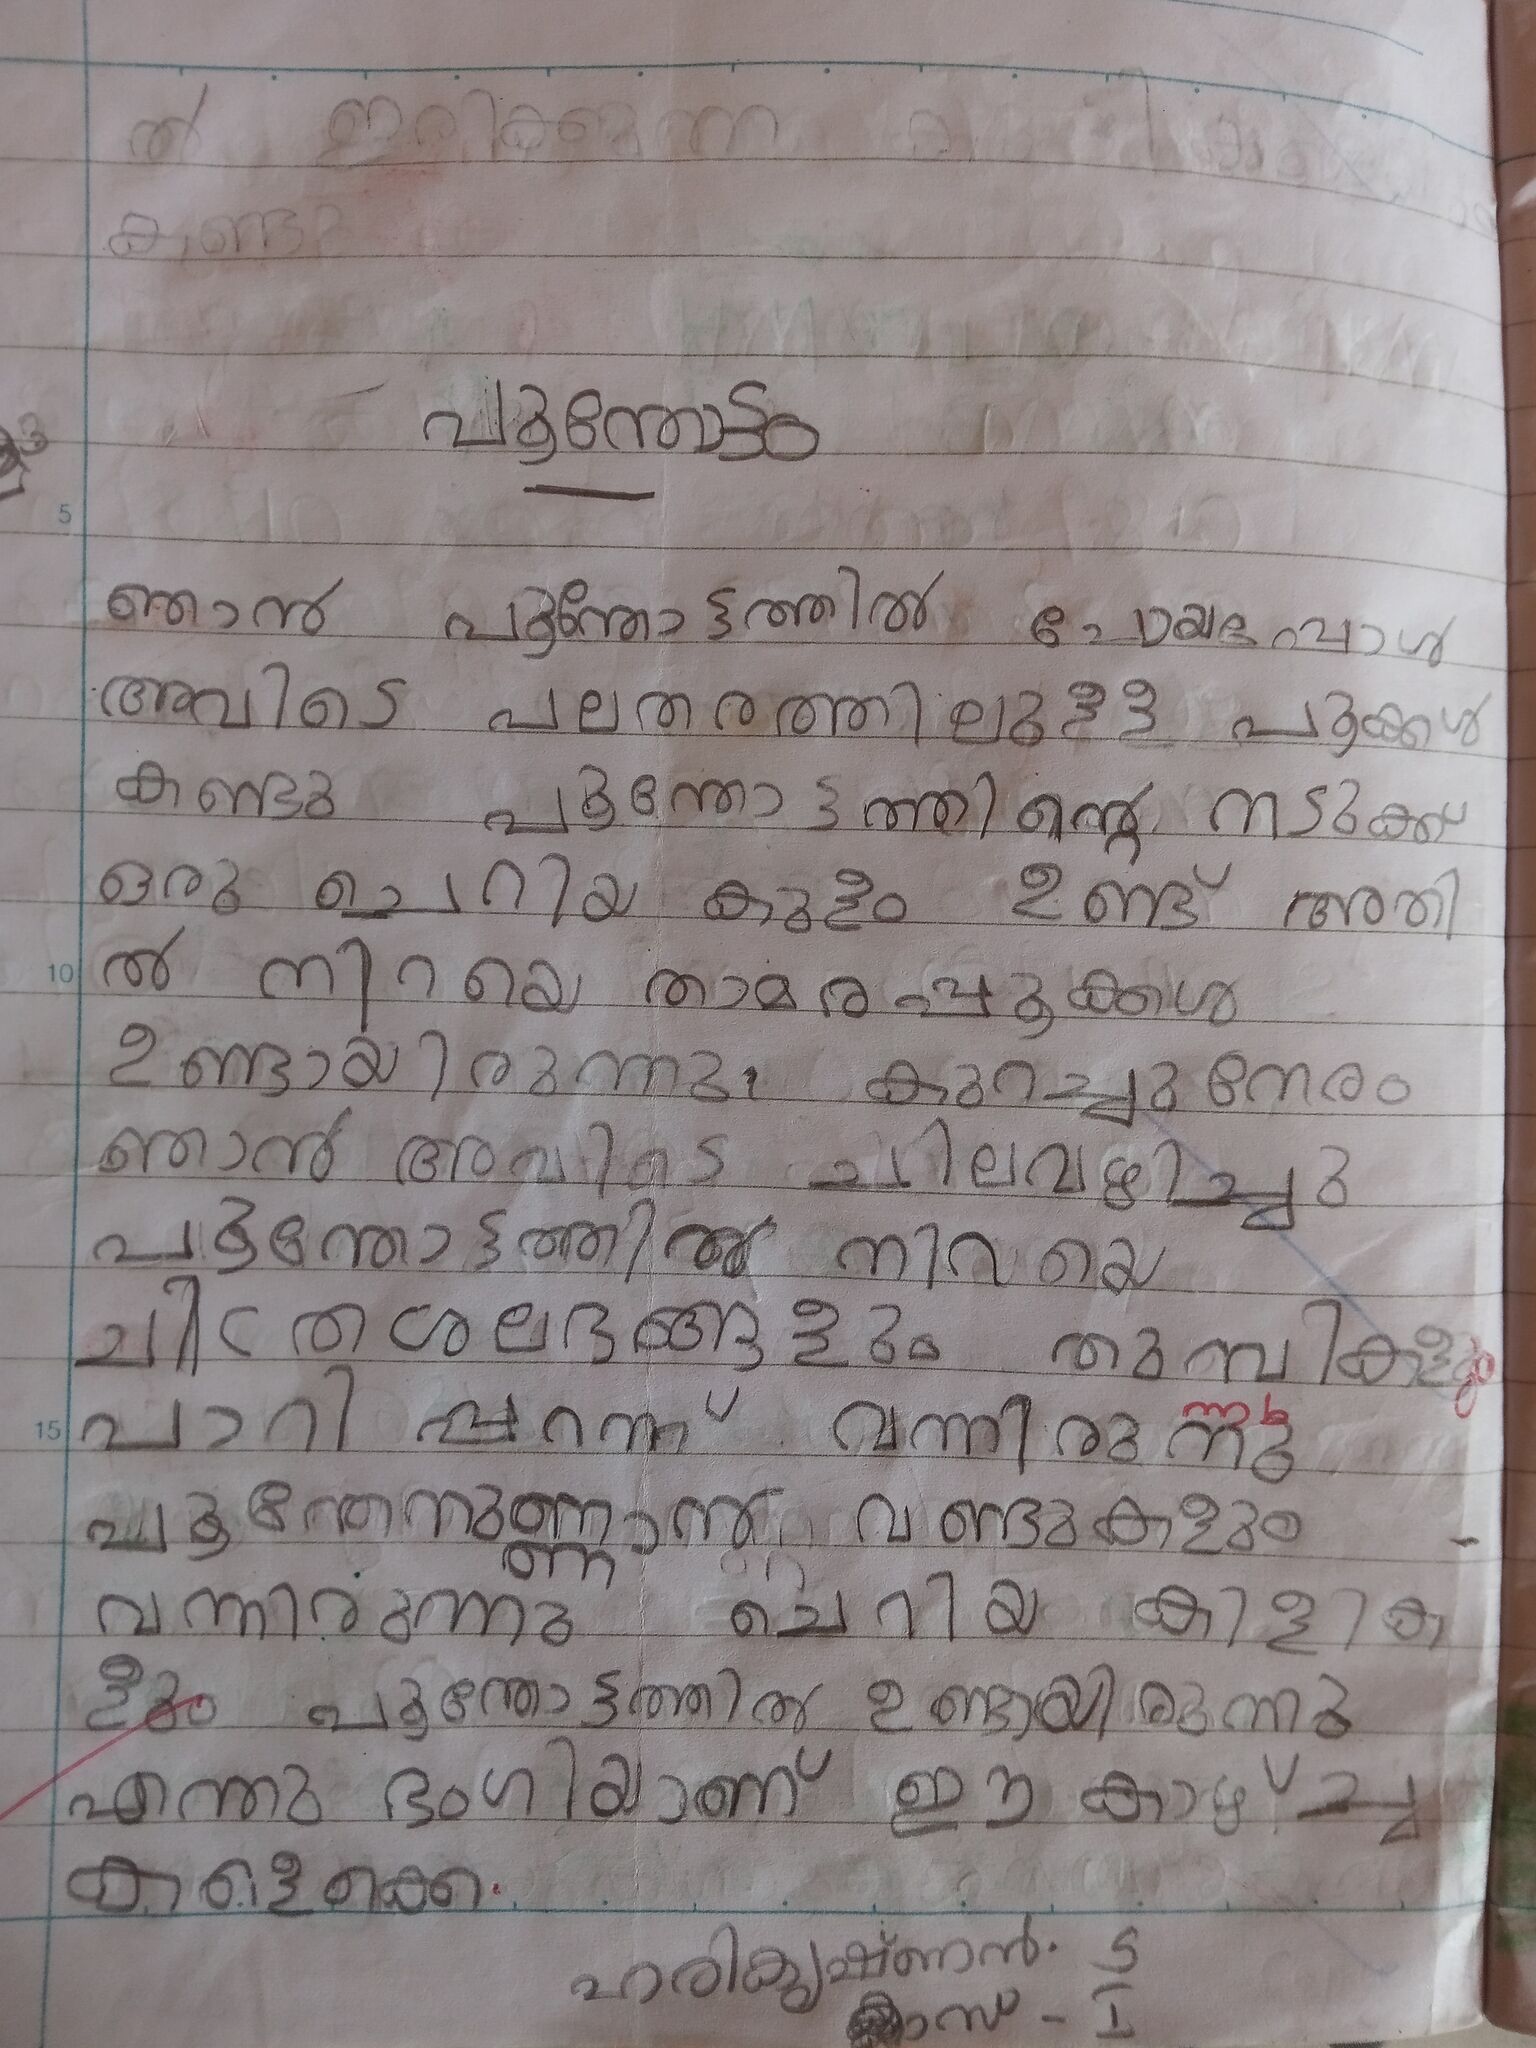 ൽ ഇരിക്കുന്ന
കണ്ടു
പൂന്തോട്ടം
ഞാൻ പൂന്തോട്ടത്തിൽ പോയപ്പോൾ
അവിടെ പലതരത്തിലുള്ള പൂക്കൾ
കണ്ടു പൂന്തോട്ടത്തിന്റെ നടുക്ക്
ഒരു ചെറിയ കുളം ഉണ്ട് അതി
ൽ നിറയെ താമരപ്പൂക്കൾ
ഉണ്ടായിരുന്നു. കുറച്ചുനേരം
ഞാൻ അവിടെ ചിലവഴിച്ചു
പൂന്തോട്ടത്തിൽ നിറയെ
ചിത്രശലഭങ്ങളും തുമ്പികളും
പാറി പ്പറന്ന് വന്നിരുന്നു
പൂന്തേനുണ്ണാൻ വണ്ടുകളും
വന്നിരുന്നു ചെറിയ കിളിക
ളും പൂന്തോട്ടത്തിൽ ഉണ്ടായിരുന്നു
എന്തു ഭംഗിയാണ് ഈ കാഴ്ച്ച
കളൊക്കെ.
ഹരികൃഷ്ണൻ. S
ക്ലാസ് - I